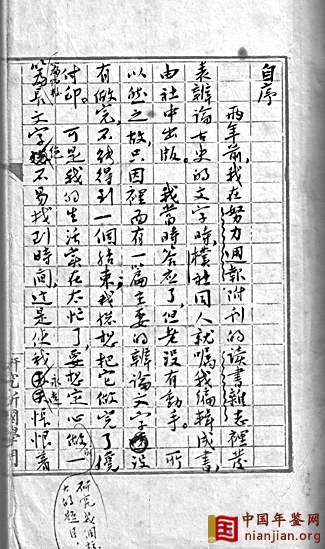 自序
兩年前，我在努力週報附刊的讀書雜志裡發
表辨論古史的文字時，樸社同人就囑我編輯成書，
由社中出版。我當時答應了，但老沒有動手。所
以然之故，只因裡面有一篇主要的辨論文字沒
有做完，不能得到一個結束；我總想把它做完了纔
付印。可是我的生活實在太忙了，要想定心做一
篇長文字，絕不易找到時間，這是使我永遠悵恨着
研究所國學門
大的題目
中国年鉴网
nianjian.org